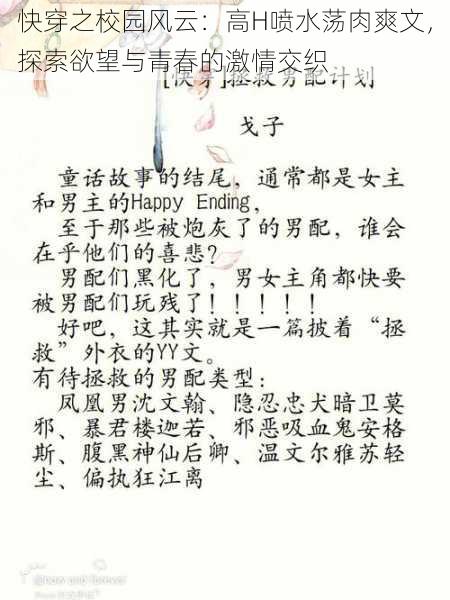 快穿之校园风云：高H喷水荡肉爽文，
探索欲望与青春的激情交织
[快穿]拯救男配计划
戈子
童话故事的结尾，通常都是女主
和男主的Happy Ending，
至于那些被炮灰了的男配，谁会
在乎他们的喜悲？
男配们黑化了，男女主角都快要
被男配们玩残了！！！！！
好吧，这其实就是一篇披着“拯
救”外衣的YY文。
有待拯救的男配类型：
凤凰男沈文翰、隐忍忠犬暗卫莫
邪、暴君楼迦若、邪恶吸血鬼安格
斯、腹黑神仙后卿、温文尔雅苏轻
尘、偏执狂江离